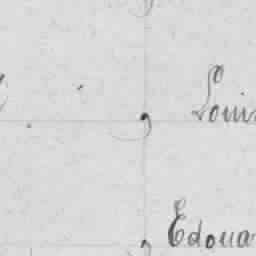 Louis
Edoua